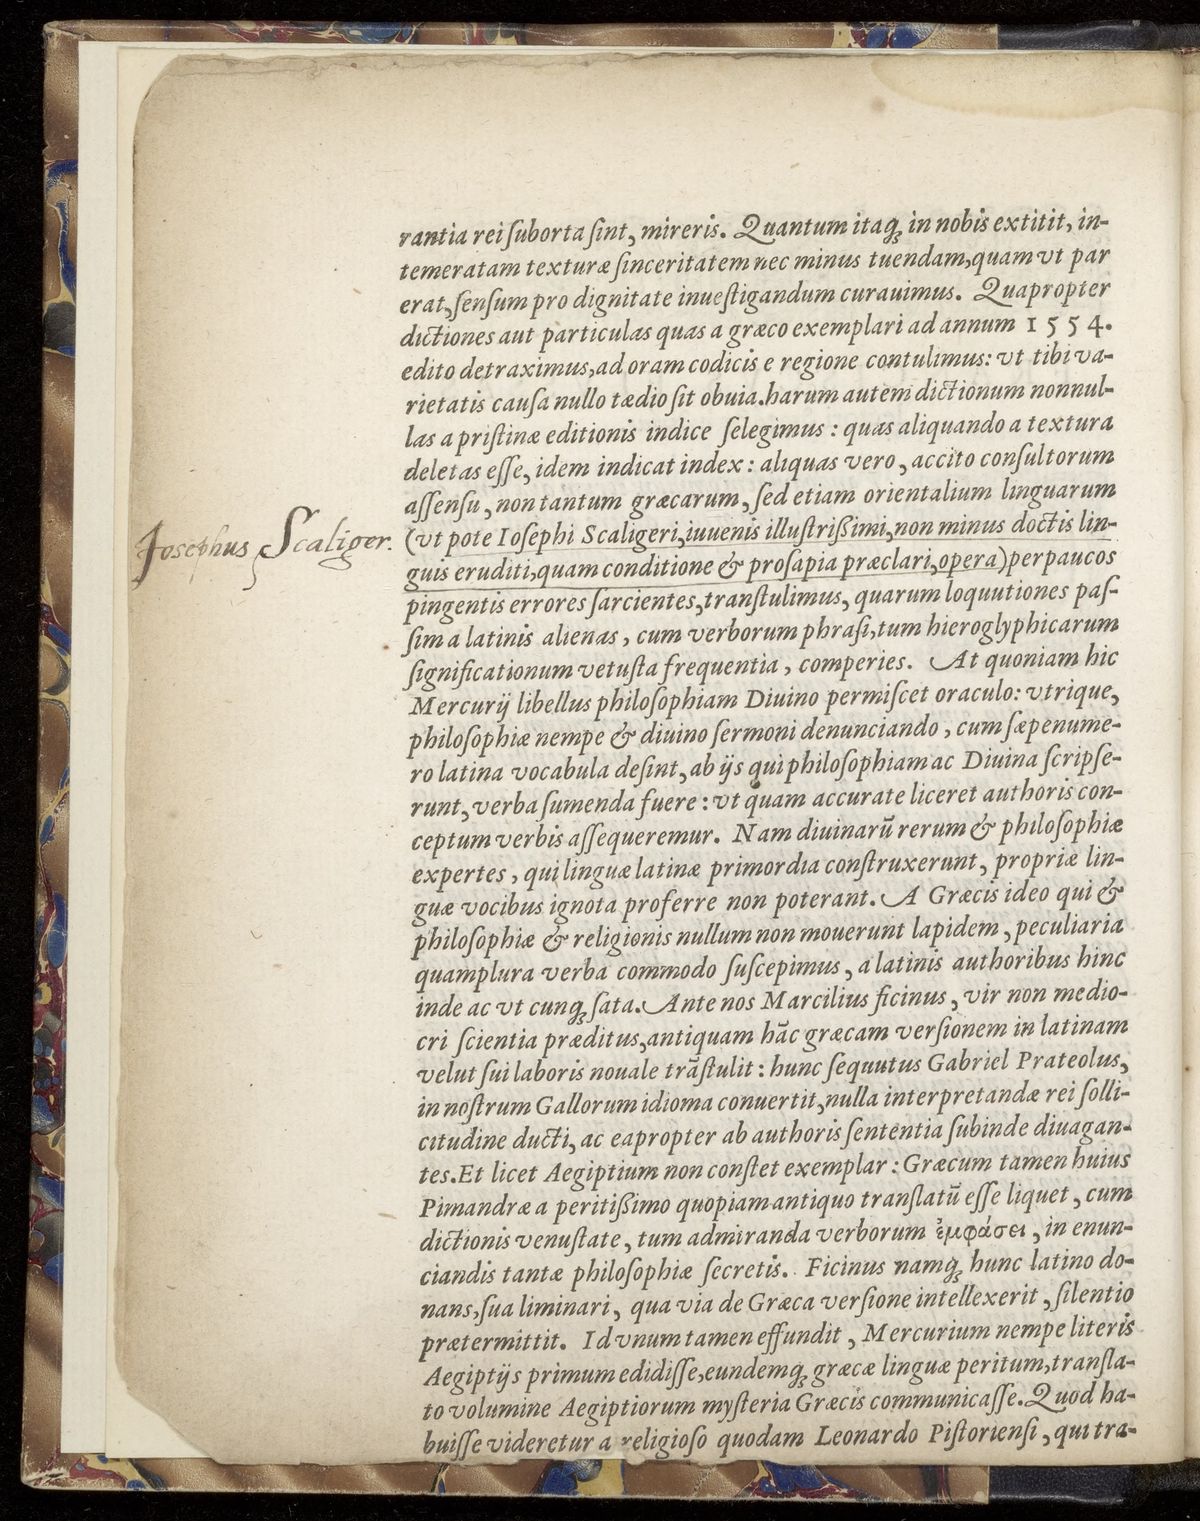 rantia rei ſuborta ſint, mireris. Quantum itaq; in nobis extitit, in-
temeratam texturæ ſinceritatem nec minus tuendam, quam vt par
erat, ſenſum pro dignitate inueſtigandum curauimus. Quapropter
dictiones aut particulas quas a græco exemplari ad annum 1554.
edito detraximus, ad oram codicis e regione contulimus: vt tibi va-
rietatis cauſa nullo tædio ſit obuia. harum autem dictionum nonnul-
las a priſtinæ editionis indice ſelegimus: quas aliquando a textura
deletas eſſe, idem indicat index: aliquas vero, accito conſultorum
aſſenſu, non tantum græcarum, ſed etiam orientalium linguarum
Josephus Scaliger. (vt pote Ioſephi Scaligeri, iuuenis illuſtrißimi, non minus doctis lin-
guis eruditi, quam conditione & proſapia præclari, opera) perpaucos
pingentis errores ſarcientes, tranſtulimus, quarum loquutiones paſ-
ſim a latinis alienas, cum verborum phraſi, tum hieroglyphicarum
ſignificationum vetuſta frequentia, comperies. At quoniam hic
Mercurij libellus philoſophiam Diuino permiſcet oraculo: vtrique,
philoſophiæ nempe & diuino ſermoni denunciando, cum ſæpenume-
ro latina vocabula deſint, ab ijs qui philoſophiam ac Diuina ſcripſe-
runt, verba ſumenda fuere: vt quam accurate liceret authoris con-
ceptum verbis aſſequeremur. Nam diuinarū rerum & philoſophiæ
expertes, qui linguæ latinæ primordia conſtruxerunt, propriæ lin-
guæ vocibus ignota proferre non poterant. A Græcis ideo qui &
philoſophiæ & religionis nullum non mouerunt lapidem, peculiaria
quamplura verba commodo ſuſcepimus, a latinis authoribus hinc
inde ac vt cunq; ſata. Ante nos Marcilius ficinus, vir non medio-
cri ſcientia præditus, antiquam hāc græcam verſionem in latinam
velut ſui laboris nouale trāſtulit: hunc ſequutus Gabriel Prateolus,
in noſtrum Gallorum idioma conuertit, nulla interpretandæ rei ſolli-
citudine ducti, ac eapropter ab authoris ſententia ſubinde diuagan-
tes. Et licet Aegiptium non conſtet exemplar: Græcum tamen huius
Pimandræ a peritißimo quopiam antiquo tranſlatū eſſe liquet, cum
dictionis venuſtate, tum admiranda verborum ἐμφάσει, in enun-
ciandis tantæ philoſophiæ ſecretis. Ficinus namq; hunc latino do-
nans, ſua liminari, qua via de Græca verſione intellexerit, ſilentio
prætermittit. Id vnum tamen effundit, Mercurium nempe literis
Aegiptijs primum edidiſſe, eundemq; græcæ linguæ peritum, tranſla-
to volumine Aegiptiorum myſteria Græcis communicaſſe. Quod ha-
buiſſe videretur a religioſo quodam Leonardo Piſtorienſi, qui tra-